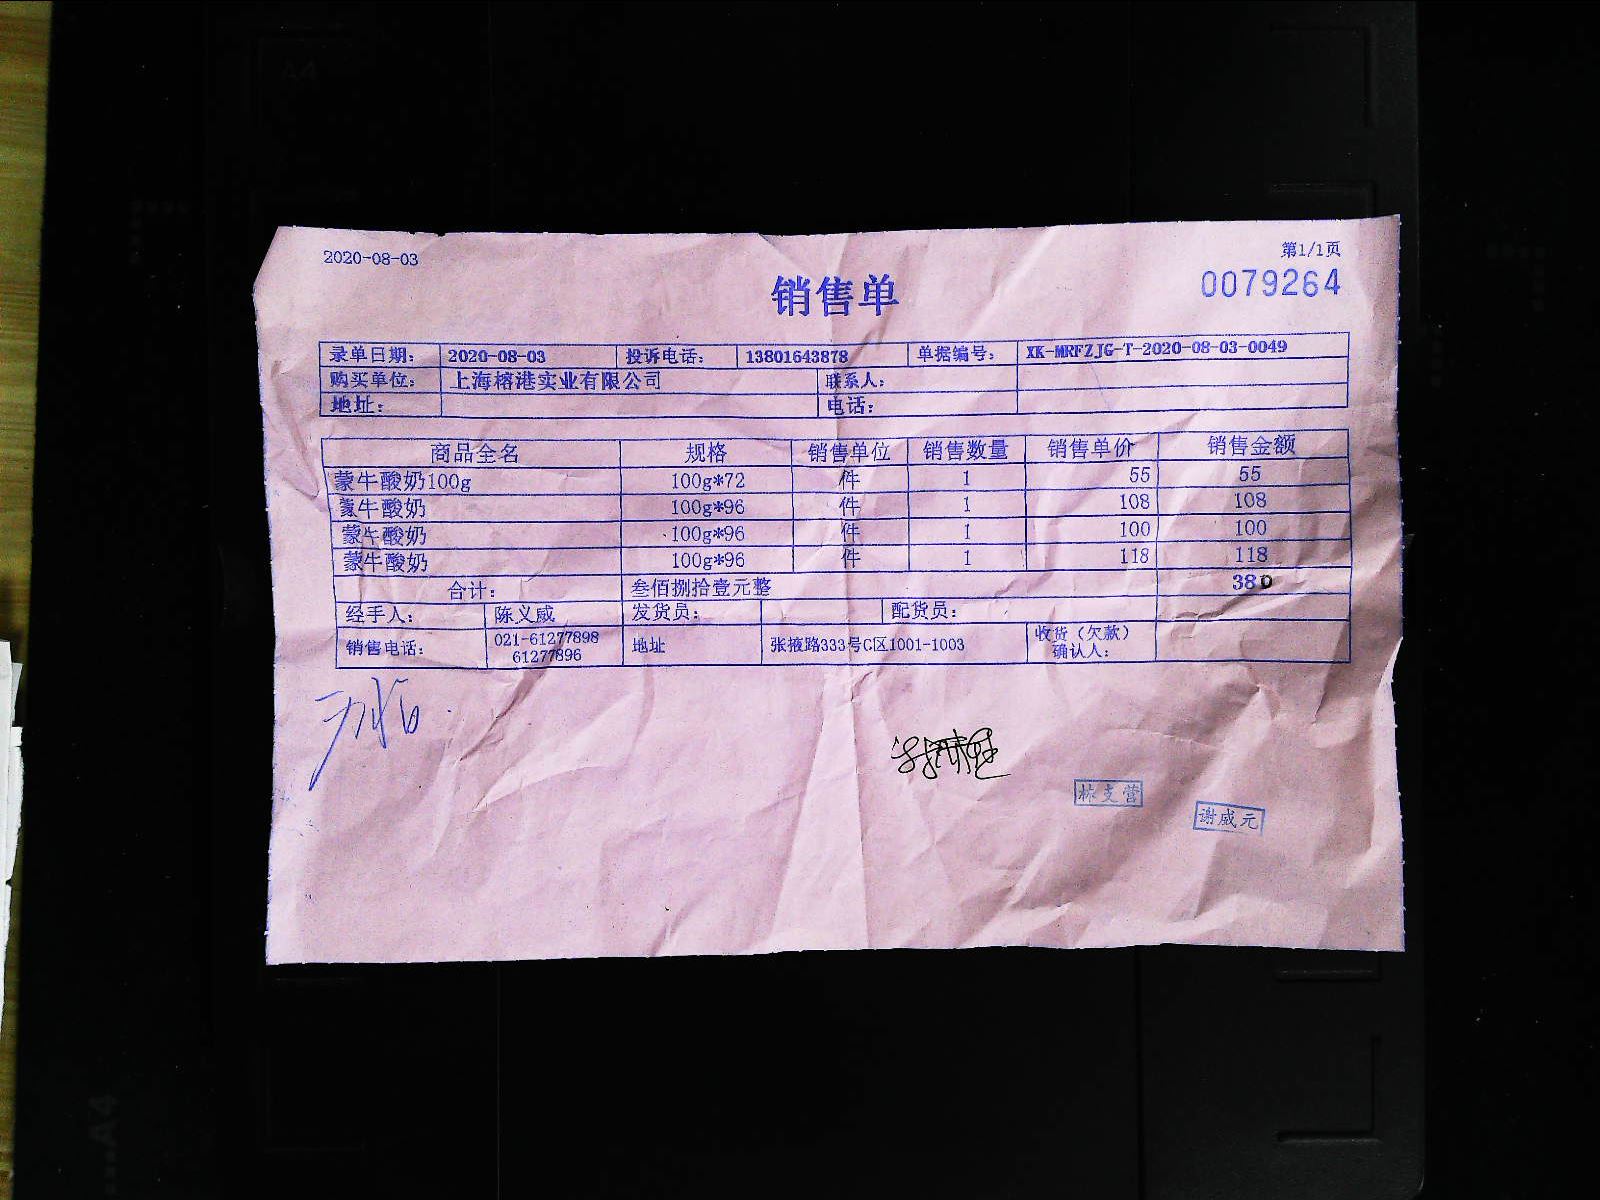 2020-08-03
第1/1页
销售单
0079264
录单日期: 2020-08-03 投诉电话: 13801643878 单据编号: XK-MRFZJG-T-2020-08-03-0049
购买单位: 上海榕港实业有限公司 联系人:
地址: 电话:
商品全名 规格 销售单位 销售数量 销售单价 销售金额
蒙牛酸奶100g 100g*72 件 1 55 55
蒙牛酸奶 100g*96 件 1 108 108
蒙牛酸奶 100g*96 件 1 100 100
蒙牛酸奶 100g*96 件 1 118 118
合计: 叁佰捌拾壹元整 380
经手人: 陈义威 发货员: 配货员:
销售电话: 021-61277898 61277896 地址 张掖路333号C区1001-1003 收货（欠款）确认人:
林支营
谢威元
A4